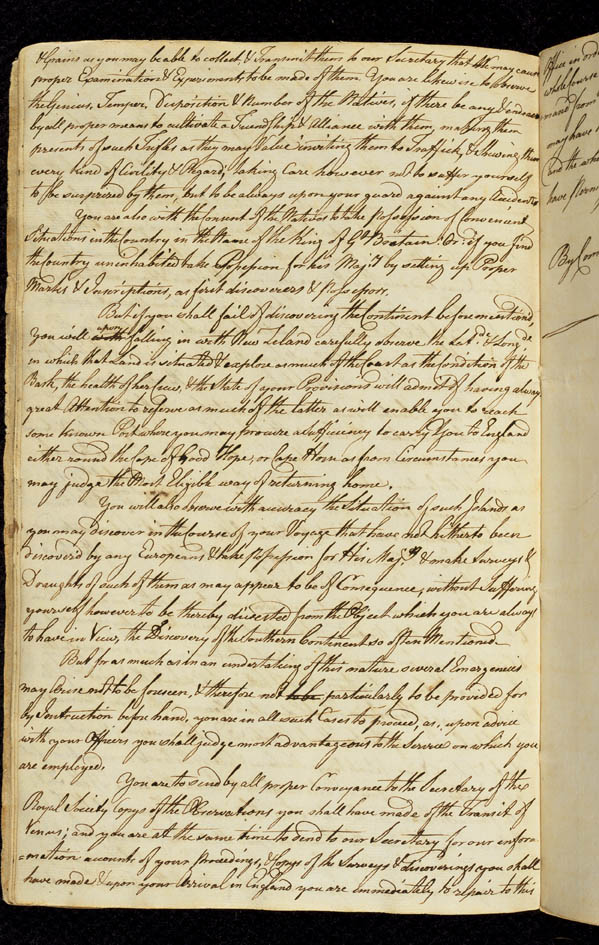 & Grains as you may be able to collect, & Transmit them to our Secretary that We may cause
proper Examination & Experiments to be made of them. You are likewise to observe
the Genius, Temper, Disposition & Number of the Natives, if there be any & endeavour
by all proper means to cultivate a Friendship & Alliance with them, making them
presents of such Trifles as they may Value inviting them to Traffick, & Shewing them
every kind of Civility & Regard; taking Care however not to suffer yourself
to be surprized by them, but to be always upon your guard against any Accidents.
You are also with the Consent of the Natives to take Possession of Convenient
Situations in the Country in the Name of the King of Gt. Britain: Or if you find
the Country uninhabited take Possession for his Majty. by setting up Proper
Marks & Inscriptions, as first discoverers & Possessors.
But if you shall fail of discovering the Continent beforemention'd,
you will upon falling in with New Zeland carefully observe the Latde. & Longde.
in which that Land is situated & explore as much of the Coast as the Condition of the
Bark, the health of her Crew, & the State of your Provisions will admit of having always
great Attention to reserve as much of the latter as will enable you to reach
some known Port where you may procure a Sufficiency to carry You to England
either round the Cape of Good Hope, or Cape Horn as from Circumstances you
may judge the Most Eligible way of returning home.
You will also observe with accuracy the Situation of such Islands as
you may discover in the Course of your Voyage that have not hitherto been
discover'd by any Europeans & take Possession for His Majty. & make Surveys &
Draughts of such of them as may appear to be of Consequence, without Suffering
yourself however to be thereby diverted from the Object which you are always
to have in View, the Discovery of the Southern Continent so often Mentioned.
But for as much as in an undertaking of this nature several Emergencies
may Arise not to be foreseen, & therefore not to be particularly to be provided for
by Instruction before hand, you are in all such Cases to proceed, as, upon advice
with your Officers you shall judge most advantageous to the Service on which you
are employed.
You are to send by all proper Conveyance to the Secretary of the
Royal Society Copys of the Observations you shall have made of the Transit of
Venus; and you are at the same time to send to our Secretary for our infor=
=mation accounts of your proceedings, & Copys of the Surveys & discoverings you shall
have made & upon your Arrival in England you are immediately to repair to this
Office in ord
whole Course
mand from
may have
and the wh
have Permi
By Com